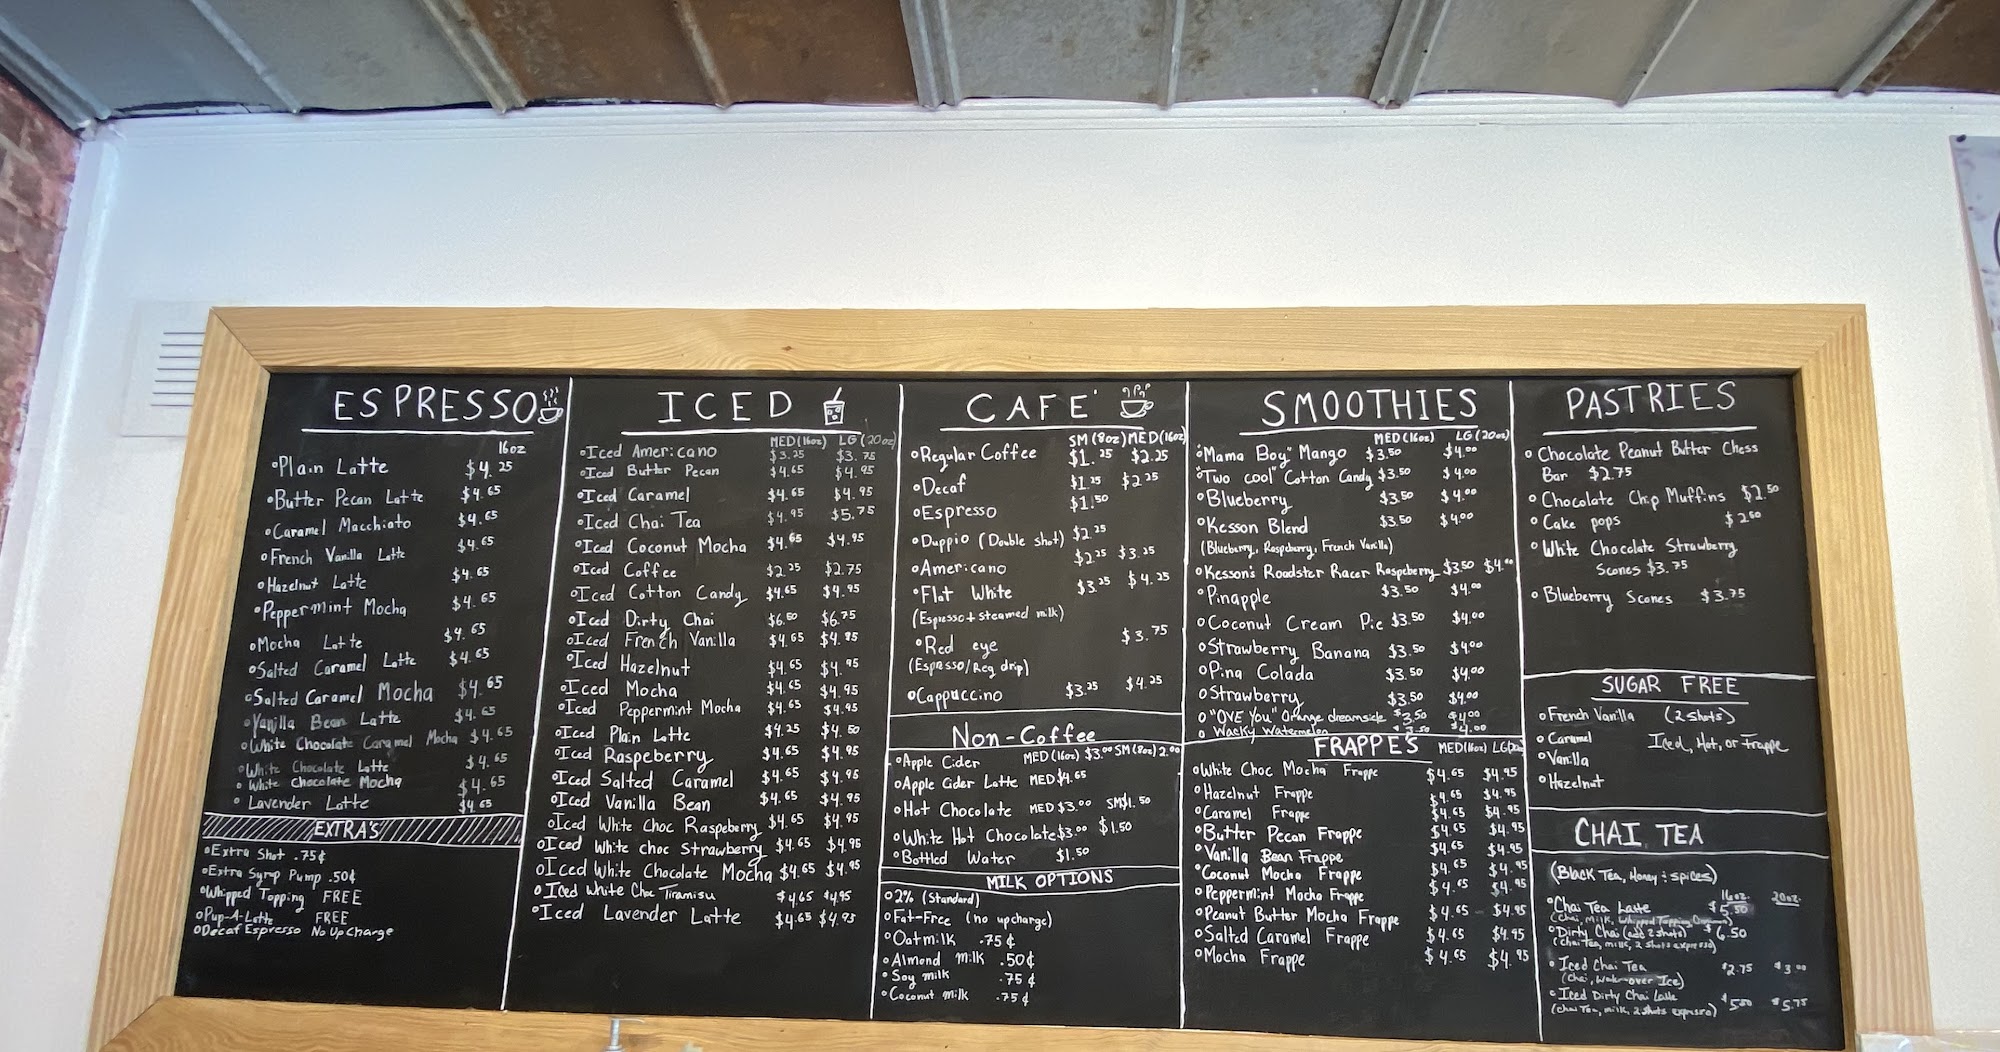 ESPRESSO
16oz
Plain Latte $4.25
Butter Pecan Latte $4.65
Caramel Macchiato $4.65
French Vanilla Latte $4.65
Hazelnut Latte $4.65
Peppermint Mocha $4.65
Mocha Latte $4.65
Salted Caramel Latte $4.65
Salted Caramel Mocha $4.65
Vanilla Bean Latte $4.65
White Chocolate Caramel Mocha $4.65
White Chocolate Latte $4.65
White Chocolate Mocha $4.65
Lavender Latte $4.65
EXTRA'S
Extra Shot .75¢
Extra Syrup Pump .50¢
Whipped Topping FREE
Pup-A-Latte FREE
Decaf Espresso No Up Charge
ICED
MED (16oz) LG (20oz)
Iced Americano $3.25 $3.75
Iced Butter Pecan $4.65 $4.95
Iced Caramel $4.65 $4.95
Iced Chai Tea $4.95 $5.75
Iced Coconut Mocha $4.65 $4.95
Iced Coffee $2.25 $2.75
Iced Cotton Candy $4.65 $4.95
Iced Dirty Chai $6.50 $6.75
Iced French Vanilla $4.65 $4.95
Iced Hazelnut $4.65 $4.95
Iced Mocha $4.65 $4.95
Iced Peppermint Mocha $4.65 $4.95
Iced Plain Latte $4.25 $4.50
Iced Raspeberry $4.65 $4.95
Iced Salted Caramel $4.65 $4.95
Iced Vanilla Bean $4.65 $4.95
Iced White Choc Raspeberry $4.65 $4.95
Iced White choc Strawberry $4.65 $4.95
Iced White Chocolate Mocha $4.65 $4.95
Iced White Choc Tiramisu $4.65 $4.95
Iced Lavender Latte $4.65 $4.95
CAFE'
SM (8oz) MED (16oz)
Regular Coffee $1.25 $2.25
Decaf $1.25 $2.25
Espresso $1.50
Duppio (Double shot) $2.25
Americano $2.25 $3.25
Flat White $3.25 $4.25
(Espresso + steamed milk)
Red eye $3.75
(Espresso/Reg drip)
Cappuccino $3.25 $4.25
Non-Coffee
Apple Cider MED (16oz) $3.00 SM (8oz) 2.00
Apple Cider Latte MED $4.65
Hot Chocolate MED $3.00 SM $1.50
White Hot Chocolate $3.00 $1.50
Bottled Water $1.50
MILK OPTIONS
2% (Standard)
Fat-Free (no upcharge)
Oatmilk .75¢
Almond milk .50¢
Soy milk .75¢
Coconut milk .75¢
SMOOTHIES
MED (16oz) LG (20oz)
"Mama Boy" Mango $3.50 $4.00
"Two cool" Cotton Candy $3.50 $4.00
Blueberry $3.50 $4.00
Kesson Blend $3.50 $4.00
(Blueberry, Raspberry, French Vanilla)
Kesson's Roadster Racer Raspeberry $3.50 $4.00
Pinapple $3.50 $4.00
Coconut Cream Pie $3.50 $4.00
Strawberry Banana $3.50 $4.00
Pina Colada $3.50 $4.00
Strawberry $3.50 $4.00
"OVE You" Orange dreamsicle $3.50 $4.00
Wacky Watermelon $3.50 $4.00
FRAPPE'S MED (16oz) LG (20oz)
White Choc Mocha Frappe $4.65 $4.95
Hazelnut Frappe $4.65 $4.95
Caramel Frappe $4.65 $4.95
Butter Pecan Frappe $4.65 $4.95
Vanilla Bean Frappe $4.65 $4.95
Coconut Mocha Frappe $4.65 $4.95
Peppermint Mocha Frappe $4.65 $4.95
Peanut Butter Mocha Frappe $4.65 $4.95
Salted Caramel Frappe $4.65 $4.95
Mocha Frappe $4.65 $4.95
PASTRIES
Chocolate Peanut Butter Chess
Bar $2.75
Chocolate Chip Muffins $2.50
Cake pops $2.50
White Chocolate Strawberry
Scones $3.75
Blueberry Scones $3.75
SUGAR FREE
French Vanilla (2 shots)
Caramel Iced, Hot, or Frappe
Vanilla
Hazelnut
CHAI TEA
(Black Tea, Honey + spices)
16oz. 20oz.
Chai Tea Latte $5.50
(Chai, milk, Whipped Topping
Dirty Chai (add 2 shots) $6.50
(Chai Tea, milk, 2 shots espresso)
Iced Chai Tea $2.75 $3.00
(Chai, Water over Ice)
Iced Dirty Chai Latte $5.50 $5.75
(Chai Tea, milk, 2 shots espresso)